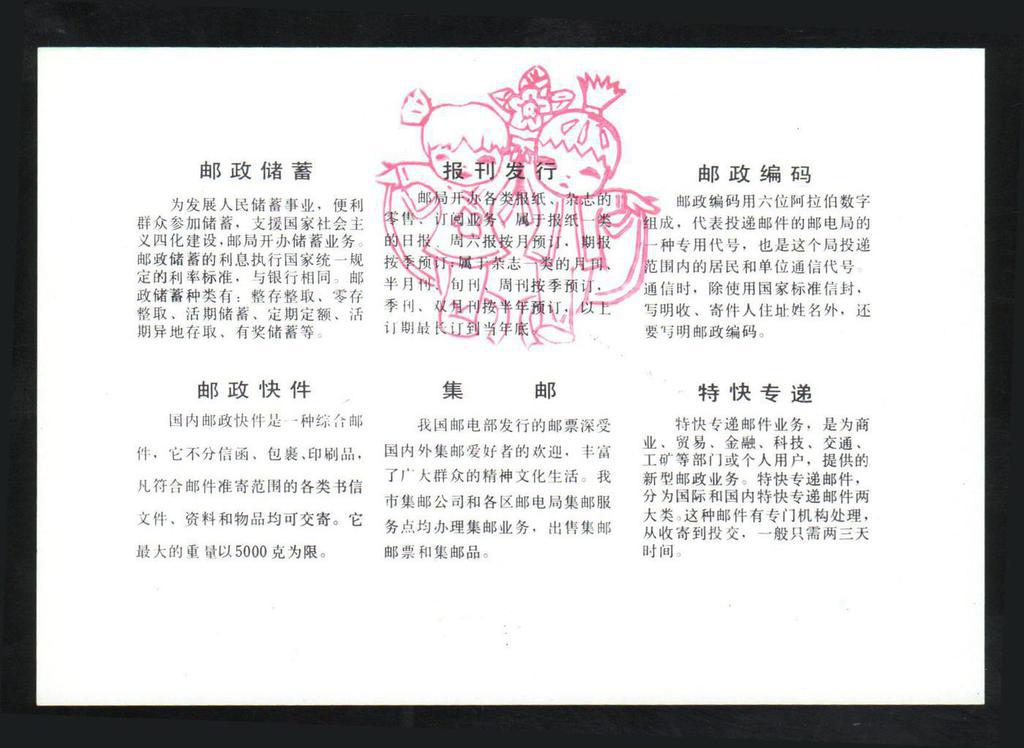 邮政储蓄
为发展人民储蓄事业，便利
群众参加储蓄，支援国家社会主
义四化建设，邮局开办储蓄业务。
邮政储蓄的利息执行国家统一规
定的利率标准，与银行相同。邮
政储蓄种类有：整存整取、零存
整取、活期储蓄、定期定额、活
期异地存取、有奖储蓄等。
报刊发行
邮局开办各类报纸、杂志的
零售、订阅业务。属于报纸一类
的日报、周六报按月预订，期报
按季预订；属于杂志一类的月刊、
半月刊、旬刊、周刊按季预订，
季刊、双月刊按半年预订，以上
订期最长订到当年底。
邮政编码
邮政编码用六位阿拉伯数字
组成，代表投递邮件的邮电局的
一种专用代号，也是这个局投递
范围内的居民和单位通信代号。
通信时，除使用国家标准信封，
写明收、寄件人住址姓名外，还
要写明邮政编码。
邮政快件
国内邮政快件是一种综合邮
件，它不分信函、包裹、印刷品，
凡符合邮件准寄范围的各类书信
文件、资料和物品均可交寄。它
最大的重量以5000克为限。
集邮
我国邮电部发行的邮票深受
国内外集邮爱好者的欢迎，丰富
了广大群众的精神文化生活。我
市集邮公司和各区邮电局集邮服
务点均办理集邮业务，出售集邮
邮票和集邮品。
特快专递
特快专递邮件业务，是为商
业、贸易、金融、科技、交通、
工矿等部门或个人用户，提供的
新型邮政业务。特快专递邮件，
分为国际和国内特快专递邮件两
大类。这种邮件有专门机构处理，
从收寄到投交，一般只需两三天
时间。